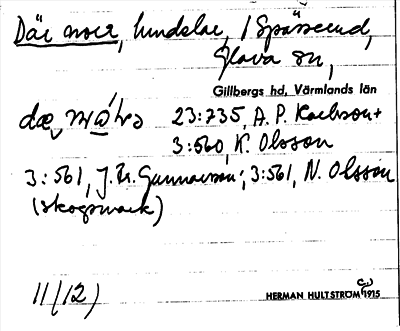 Där norr, lundelar, i Spässerud,
Glava sn,
Gillbergs hd, Värmlands län
23:735, A. P. Karlsson +
3:560, K. Olsson
3:561, J. Gunnarson; 3:561, N. Olsson
(skogsmark)
11/12)
HERMAN HULTSTRÖM 1915